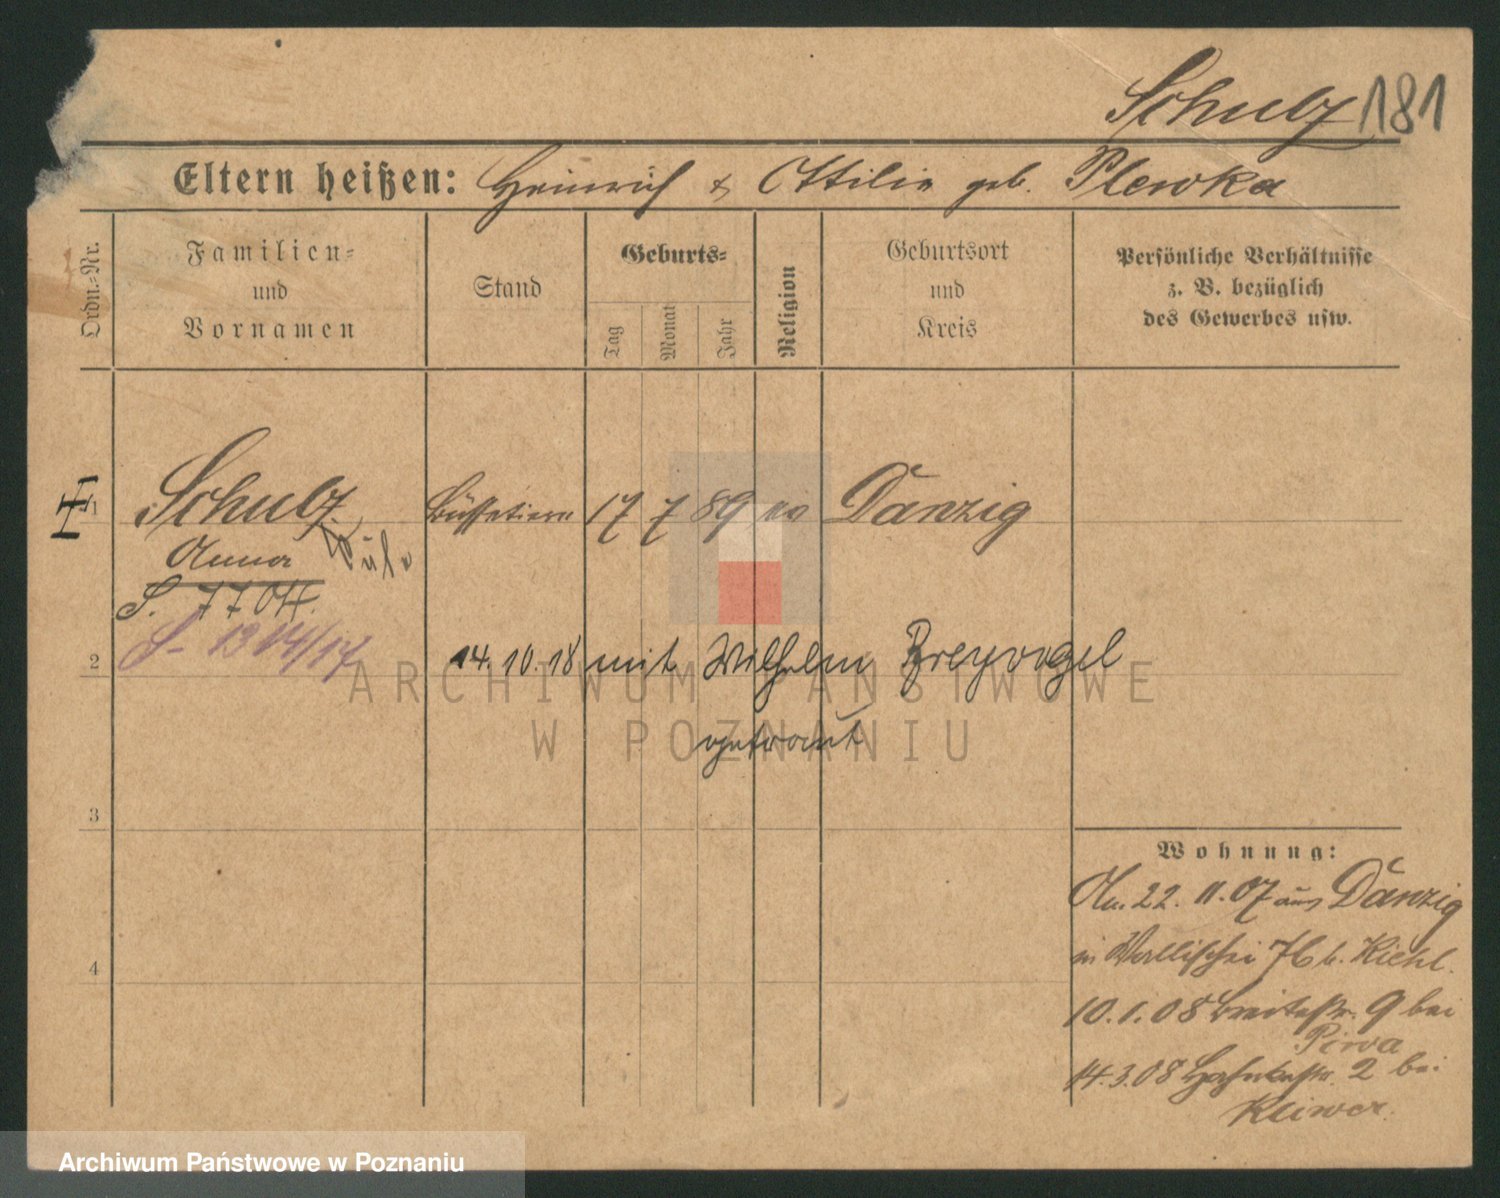 Schulz 181
Eltern heißen: Heinrich & Ottilie geb. Plewka
Ordn.-Nr.
Familien-
und
Vornamen
Stand
Geburts-
Tag
Monat
Jahr
Religion
Geburtsort
und
Kreis
Persönliche Verhältnisse
z. B. bezüglich
des Gewerbes usw.
1 Schulz Büffetiere 17 7 89 ev Danzig
Anna
S.
S. 1914/17
2 14.10.18 mit Wilhelm Breyvogel
getraut
3
4
Wohnung:
An. 22. 11. 07 aus Danzig
in Wallischei 76 b. Riehl.
10.1.08 Breitestr. 9 bei
14.3.08 2 bei
ARCHIWUM PAŃSTWOWE
W POZNANIU
Archiwum Państwowe w Poznaniu